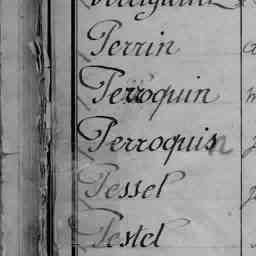 Perrin
Perroquin
Perroquin
Pessel
Pestel